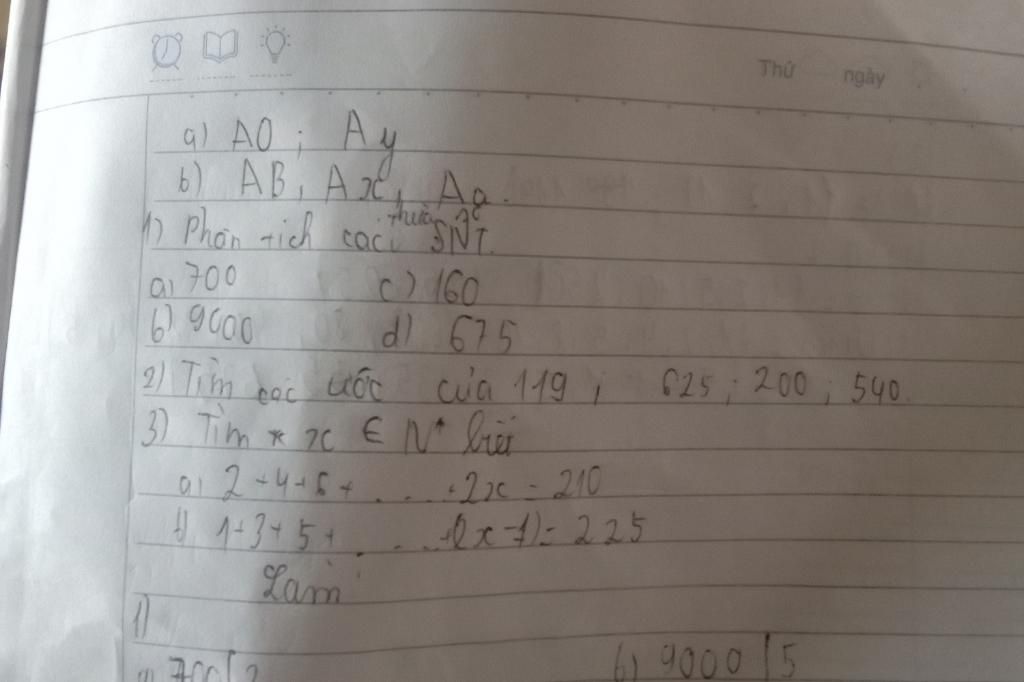 Thứ ngày
a) AO ; Ay
b) AB, Ax, Aq.
1) Phân tích các thừa SNT.
a, 700 c) 160
b) 9000 d) 675
2) Tìm các ước của 119 ; 625 ; 200 ; 540.
3) Tìm x ∈ N* biết
a, 2+4+6+.....+2x = 210
b) 1+3+5+.....+(2x-1) = 225
Làm
1)
a) 700 | 2 b) 9000 | 5